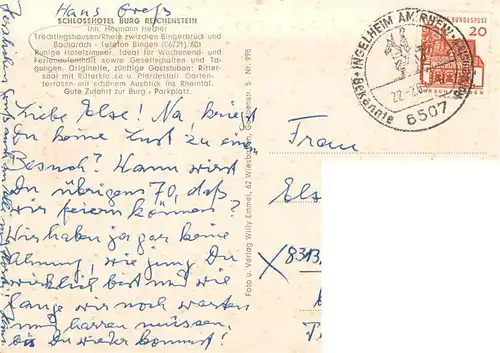 Hans Greß
SCHLOSSHOTEL BURG REICHENSTEIN
Inh. Hermann Hecher
Trechtingshausen/Rhein zwischen Bingerbrück und
Bacharach - Telefon Bingen (06721) 601
Ruhige Hotelzimmer, ideal für Wochenend- und
Ferienaufenthalt sowie Gesellschaften und Ta-
gungen. Originelle, zünftige Gaststuben: Ritter-
saal mit Ritterklause u. Pferdestall. Garten-
terrasse mit schönem Ausblick ins Rheintal.
Gute Zufahrt zur Burg - Parkplatz.
Liebe Else! Na, kriegst
Du keine Lust zu einem
Besuch? Wann wirst
Du übrigens 70, daß
wir feiern können?
Wir haben ja gar keine
Ahnung, wie jung Du
wirklich bist und wie
lange wir noch warten
und harren müssen,
bis Du wieder kommst!
Foto u. Verlag Willy Emmel, 62 Wiesbaden, 5 Nr. 998
INGELHEIM AM RHEIN
bekannte
22.-2.
6507
BUNDESPOST
20
Frau
Els
8313